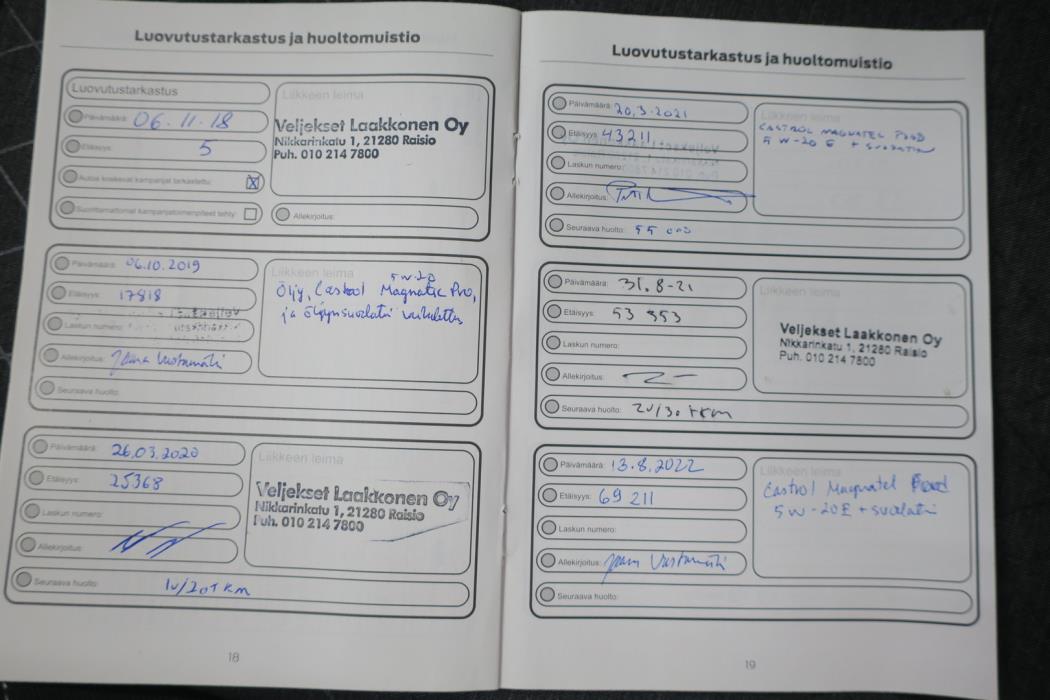 Luovutustarkastus ja huoltomuistio
Luovutustarkastus
Päivämäärä: 06.11.18
Etäisyys: 5
Autoa koskevat kampanjat tarkastettu:
Suorittamattomat kampanjatoimenpiteet tehty:
Liikkeen leima
Veljekset Laakkonen Oy
Nikkarinkatu 1, 21280 Raisio
Puh. 010 214 7800
Allekirjoitus:
Päivämäärä: 06.10.2019
Etäisyys: 17818
Laskun numero:
Allekirjoitus:
Seuraava huolto:
Liikkeen leima
5W-20
Öljy, Castrol Magnatec Pro,
ja öljynsuodatin vaihdettu
Päivämäärä: 26.03.2020
Etäisyys: 25368
Laskun numero:
Allekirjoitus:
Seuraava huolto: 1v/20tkm
Liikkeen leima
Veljekset Laakkonen Oy
Nikkarinkatu 1, 21280 Raisio
Puh. 010 214 7800
18
Luovutustarkastus ja huoltomuistio
Päivämäärä: 20.3.2021
Etäisyys: 43211
Laskun numero:
Allekirjoitus:
Seuraava huolto: 55 000
Liikkeen leima
CASTROL MAGNATEL FORD
5W-20 E + SUODATIN
Päivämäärä: 31.8-21
Etäisyys: 53 353
Laskun numero:
Allekirjoitus:
Seuraava huolto: 2v/30tkm
Liikkeen leima
Veljekset Laakkonen Oy
Nikkarinkatu 1, 21280 Raisio
Puh. 010 214 7800
Päivämäärä: 13.8.2022
Etäisyys: 69 211
Laskun numero:
Allekirjoitus:
Seuraava huolto:
Liikkeen leima
Castrol Magnatel Ford
5W-20E + suodatin
19